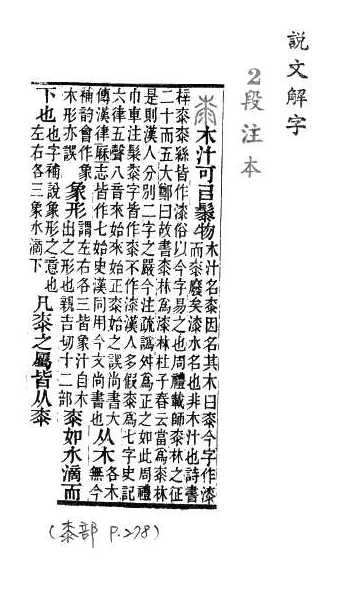 說文解字
2段注本
桼木汁可㠯髹物木汁名桼因名其木曰桼今字作漆
而桼廢矣漆水名也非木汁也詩書
梓桼桼絲皆作漆俗以今字易之也周禮載師桼林之征
二十而五大鄭曰故書桼林爲漆林杜子春云當爲桼林
是則漢人分別二字之嚴今注疏譌舛爲正之如此周禮
巾車注髹桼字皆作桼不作漆漢人多假桼爲七字史記
六律五聲八音來始來始正桼始之誤尚書大
傳漢律厤志皆作七始史漢同用今文尚書也
从木各本
無今
補韵會作象
木形亦誤
象形謂左右各三皆象汁自木
出之形也親吉切十二部
桼如水滴而
下也也字補說象形之意也
左右各三象水滴下
凡桼之屬皆从桼
(桼部 P.278)